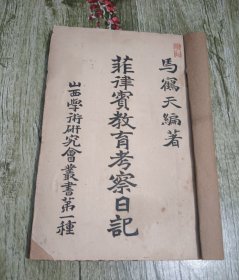 馬鶴天編著
菲律賓教育考察日記
山西學術研究會叢書第一種